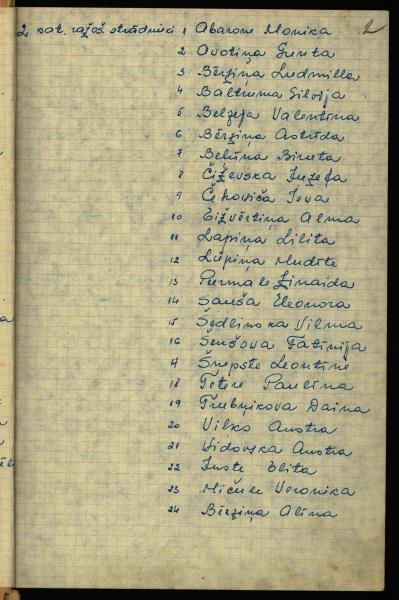 2
2. kat. ražoš. strādnieki 1 Abarone Monika
2 Avotiņa Gunta
3 Bērziņa Ludmilla
4 Baltruma Silvija
5 Belzeja Valentīna
6 Bērziņa Astrīda
7 Beķiņa Biruta
8 Čiževska Juzefa
9 Čehoviča Ieva
10 Eižvērtiņa Alma
11 Lapiņa Lilita
12 Lūpiņa Mudīte
13 Purmale Zinaida
14 Sauša Eleonora
15 Sedlinska Vilma
16 Šenšova Fatinija
17 Šnepste Leontīne
18 Tetere Paulīna
19 Trubņikova Daina
20 Vilks Austra
21 Vidovska Austra
22 Juste Elita
23 Mičule Veronika
24 Bērziņa Alīna